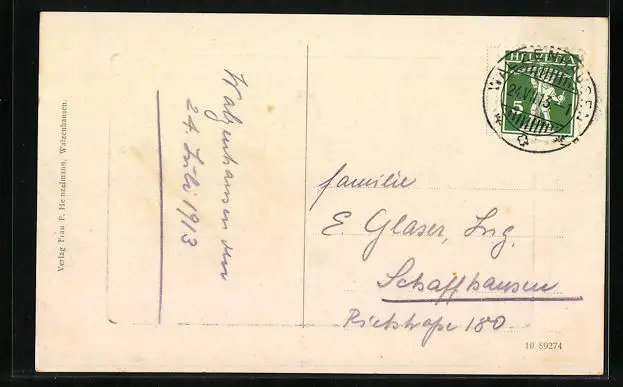 Verlag Frau F. Henzelmann, Walzenhausen.
Walzenhausen den
24. Juli 1913
HELVETIA
5
WALZENHAUSEN
24.VII.13
familie
E. Glaser, Ing.
Schaffhausen
180
10 89274